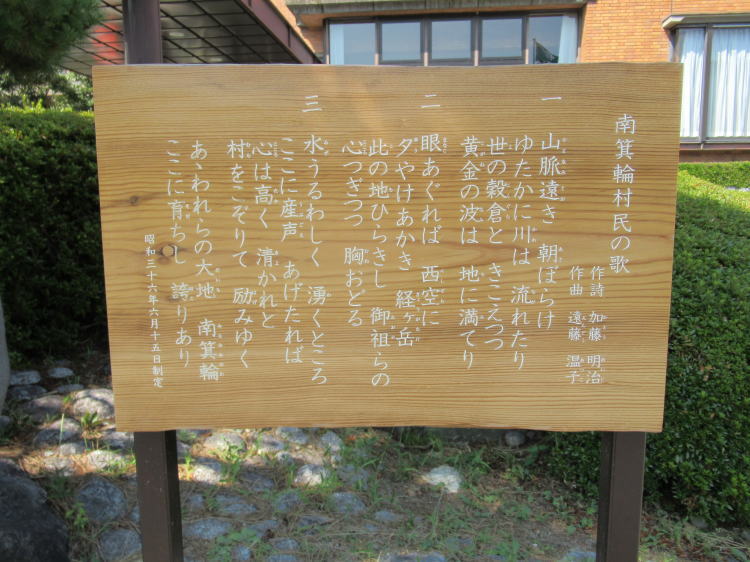 南箕輪村民の歌
作詩 加藤 明治
作曲 遠藤 温子
一
山脈遠き 朝ぼらけ
ゆたかに川は 流れたり
世の穀倉と きこえつつ
黄金の波は 地に満てり
二
眼あぐれば 西空に
夕やけあかき 経ヶ岳
此の地ひらきし 御祖らの
心つぎつつ 胸おどる
三
水うるわしく 湧くところ
ここに産声 あげたれば
心は高く 清かれと
村をこぞりて 励みゆく
あゝわれらの大地 南箕輪
ここに育ちし 誇りあり
昭和三十六年六月十五日制定